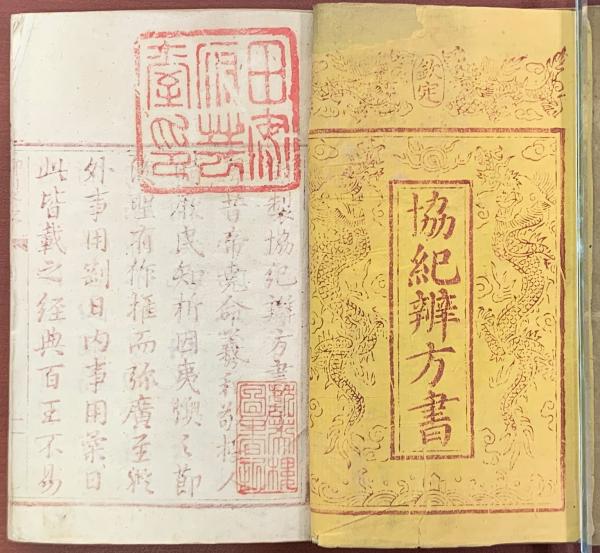 欽定
協紀辨方書
製協紀辨方書
昔帝堯命羲和敬授人
民知析因夷燠之節
有作推而弥廣至於
外事用剛日內事用柔日
此皆載之經典百王不易